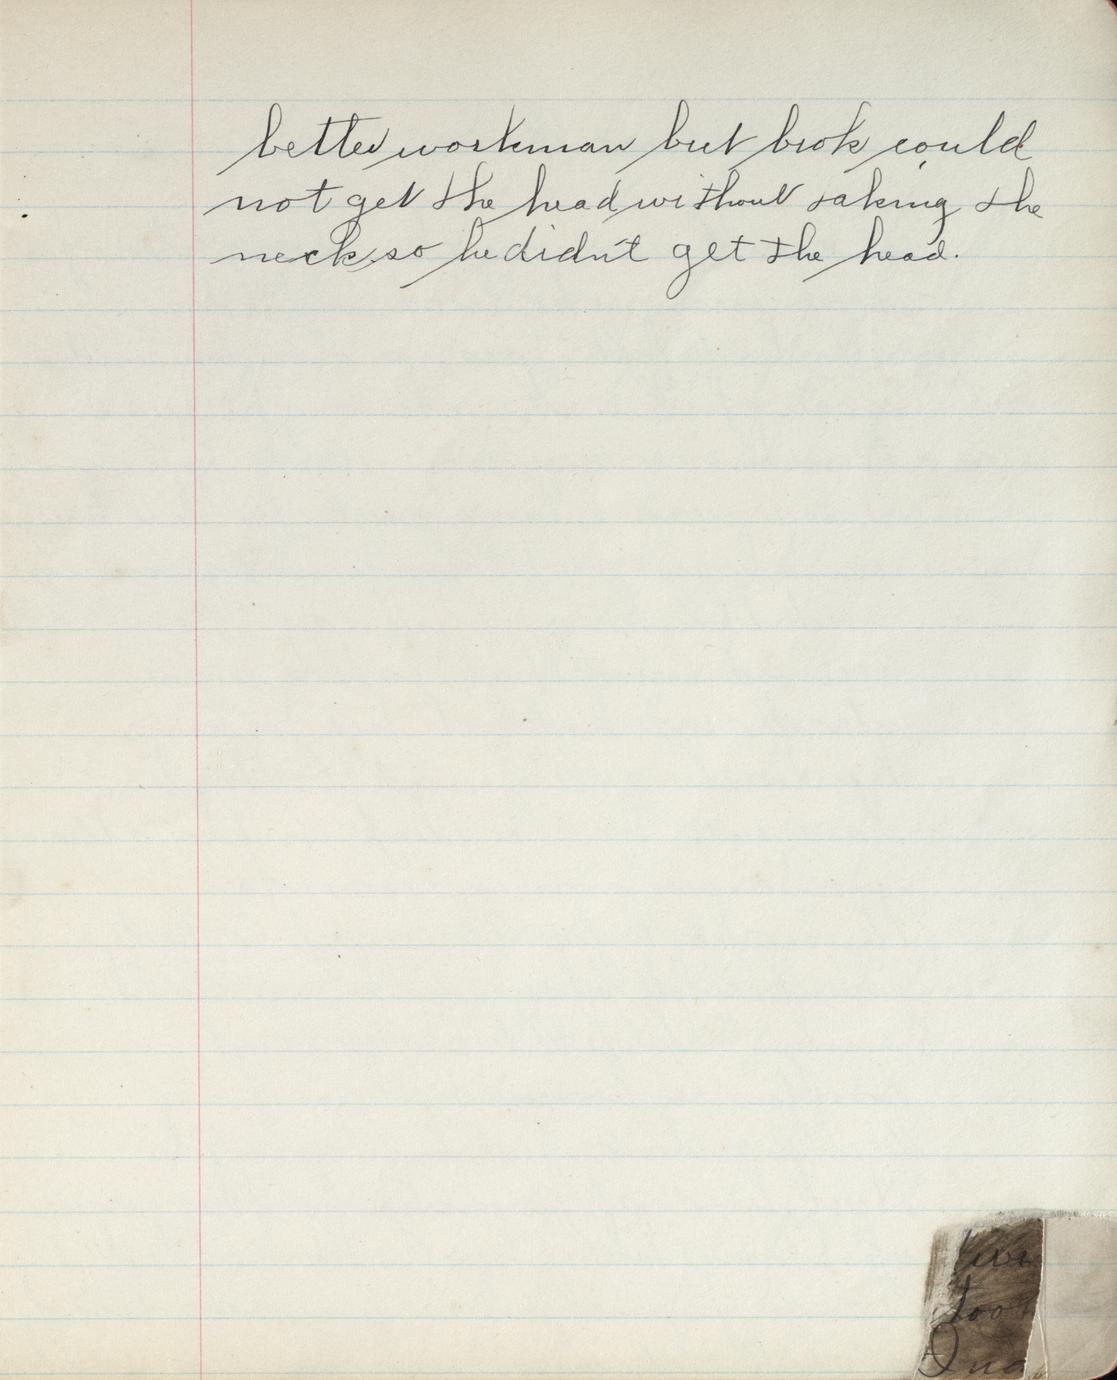 better workman but brok could
not get the head without taking the
neck so he didn't get the head.